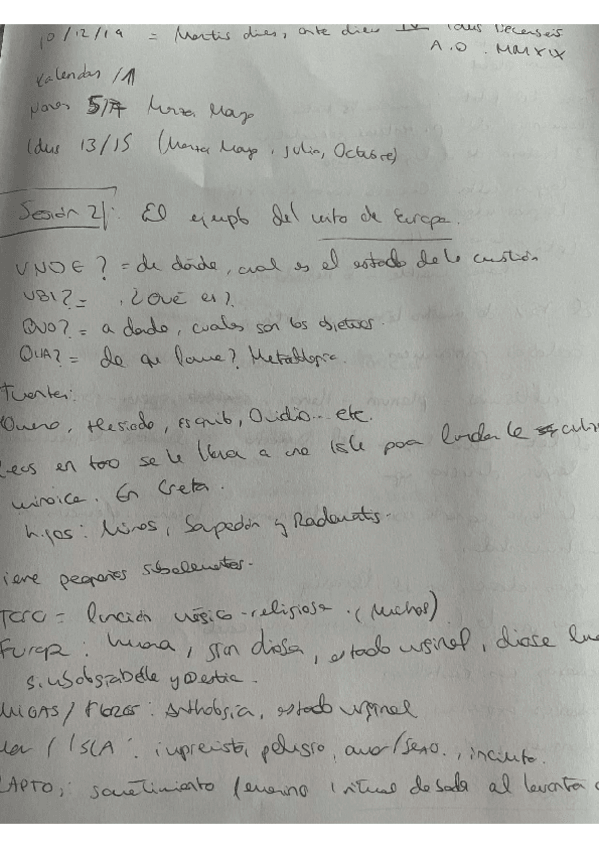 10/12/19 = Martis dies, ante diem IV Idus Decembris
A.D. MMXIX
Kalendas /1
Nonas 5/7 Marzo Mayo
Idus 13/15 (Marzo Mayo, Julio, Octubre)
Sesión 2/: El ejemplo del mito de Europa.
VNDE? = de dónde, cual es el estado de la cuestión
VBI? = ¿Qué es?
QUO? = a donde, cuales son los objetivos.
QUA? = de que forma? Metodología.
Fuentes:
Homero, Hesiodo, Esquilo, Ovidio... etc.
Zeus en toro se la lleva a una isla para fundar la cultura
minoica. En Creta.
hijos: Minos, Sarpedón y Radamantis.
tiene pequeños subelementos.
TORO = función mágico-religiosa. (Machos)
Europa: humana, gran diosa, estado virginal, diosa
y bestia.
AMIGAS / FLORES: Anthología, estado virginal
Mar / ISLA: imprevisto, peligro, amor/sexo, incierto.
RAPTO: sometimiento femenino al levantar